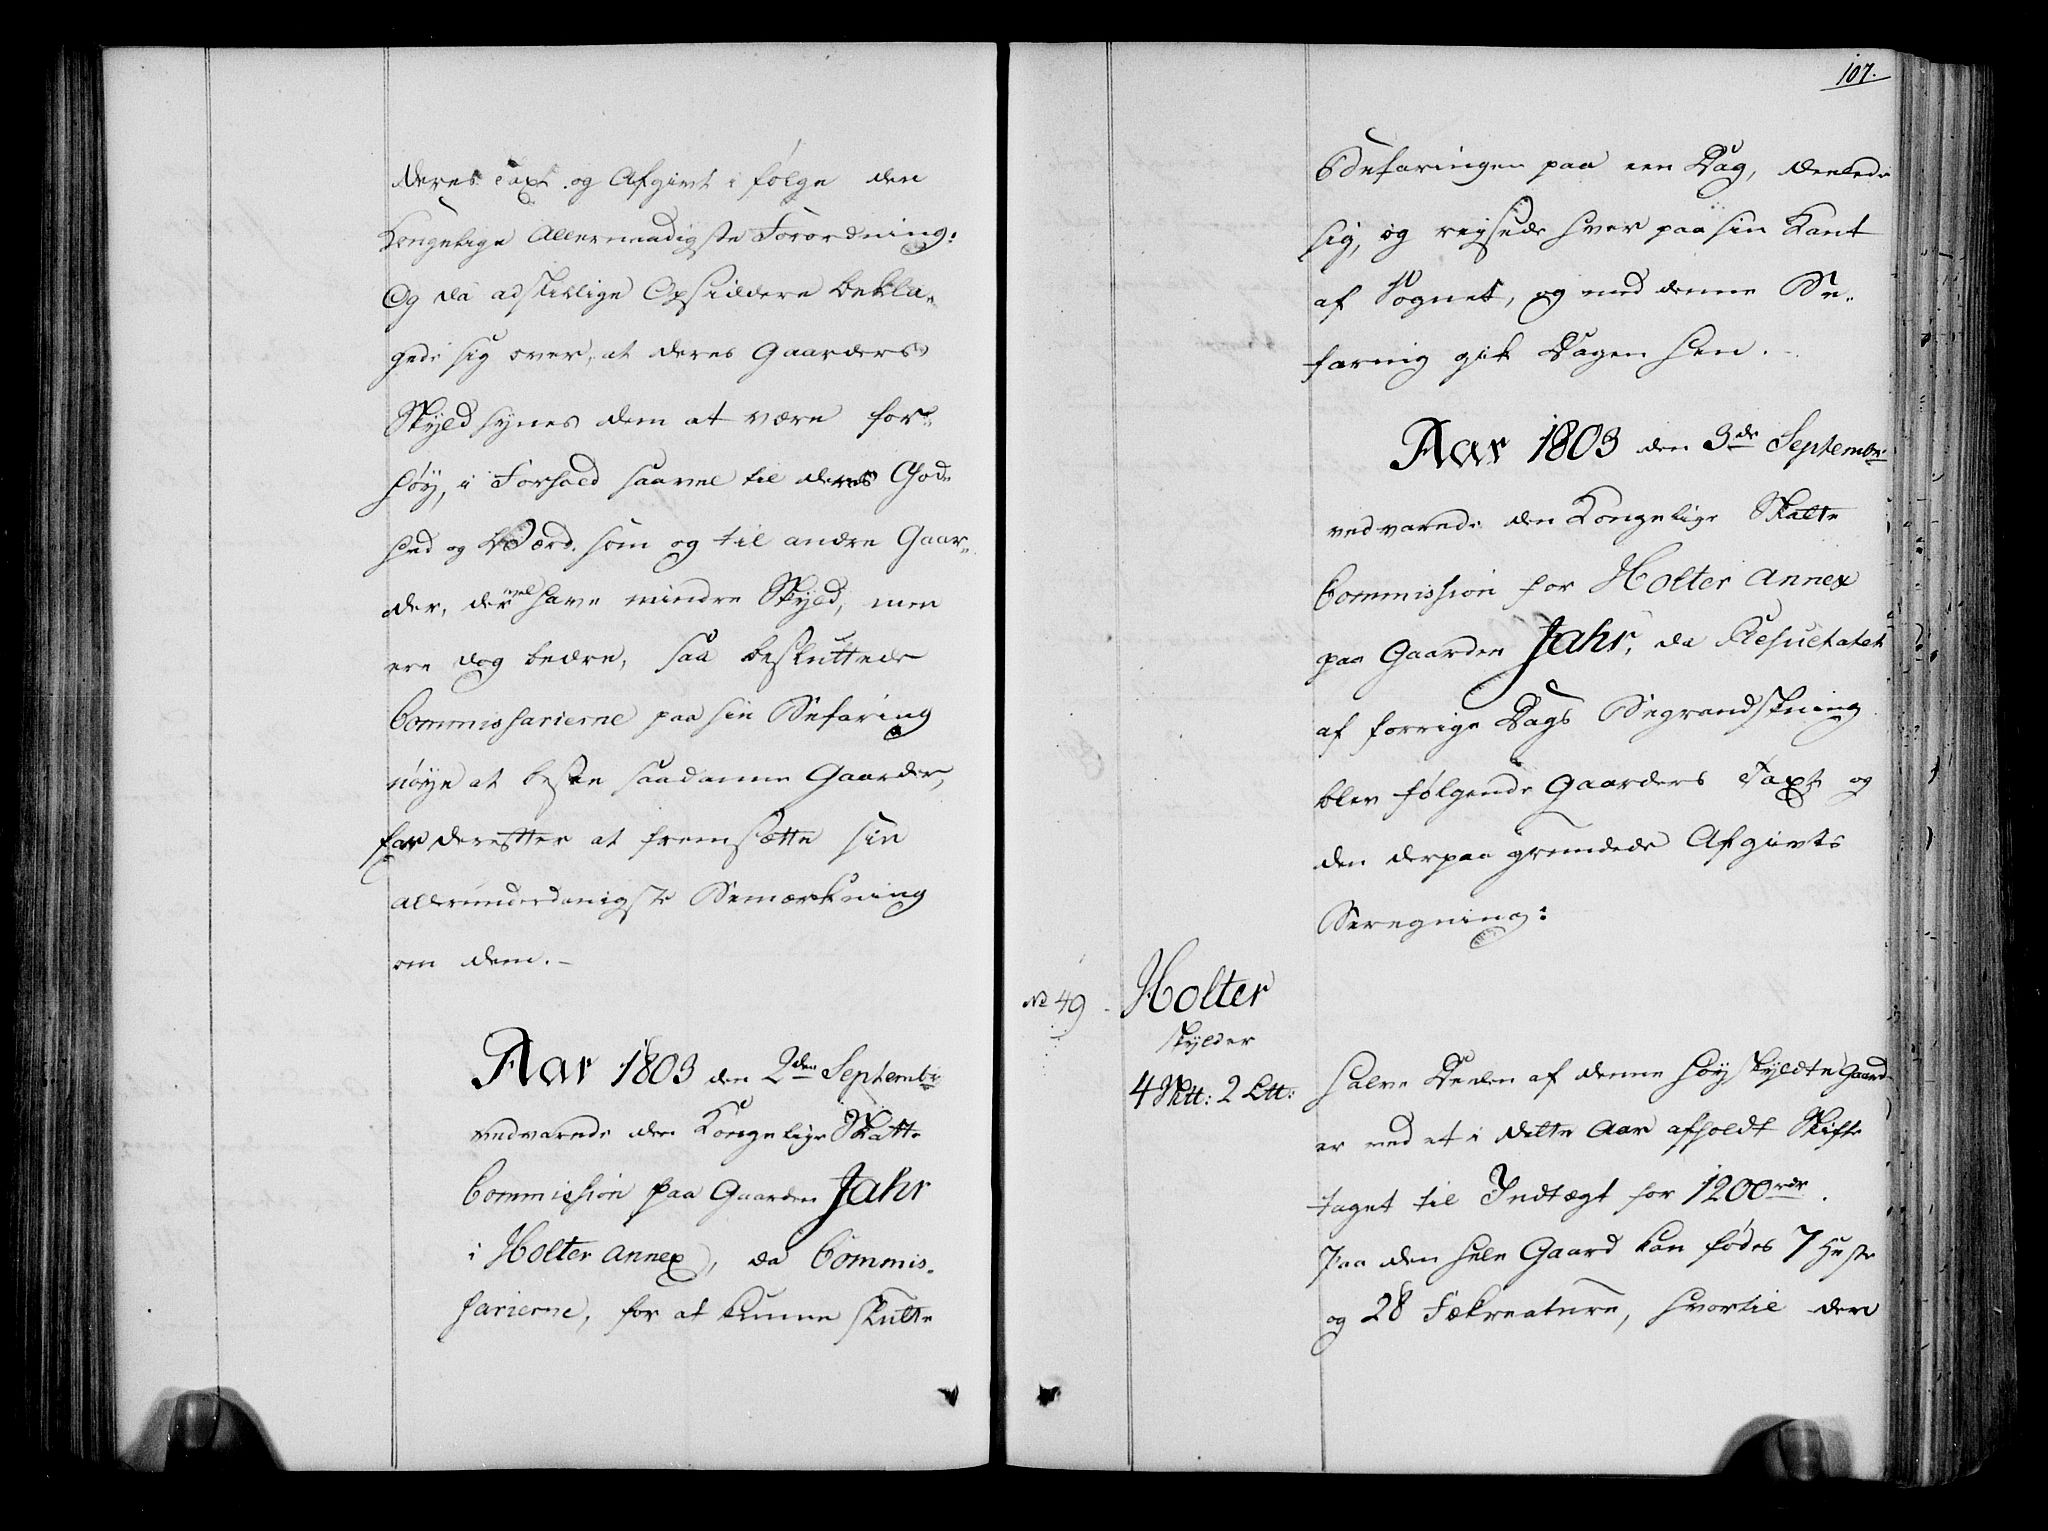 deres Taxt og Afgivt i følge den
Kongelige Allernaadigste Forordning:
Og da adskillige Opsiddere bekla-
gede sig over, at deres Gaarders
Skyld synes dem at være for
høy, i Forhold saavel til deres God-
hed og Værd. som og til andre Gaar-
der, der vel have mindre Skyld, men
ere dog bedre, saa besluttede
Commissarierne paa sin Befaring
nøye at besee saadanne Gaarder,
for derefter at fremsætte sin
allerunderdanigste Bemærkning
om dem.
Aar 1803 den 2den Septembr
vedvarede den Kongelige Skatte
Commission paa Gaarden Jahr
i Holter Annex, da Commis-
sarierne, for at kunne slutte
107.
Befaringen paa een Dag, deelede
sig, og reysede hver paa sin Kant
af Sognet, og med denne Be-
faring gik Dagen hen.
Aar 1803 den 3de Septembr
vedvarede den Kongelige Skatte
Commission for Holter Annex
paa Gaarden Jahr, da Resultatet
af forrige Dags Begrandskning
blev følgende Gaarders Taxt og
den derpaa grundede Afgivts
Beregning:
No 49. Holter
skylder
4 Skt: 2 Ltt:
Halve Deelen af denne høyskyldte Gaard
er ved et i dette Aar afholdt Skifte
taget til Indtægt for 1200 rdr.
Paa den hele Gaard kan fødes 7 Heste
og 28 Fækreature, hvortil den